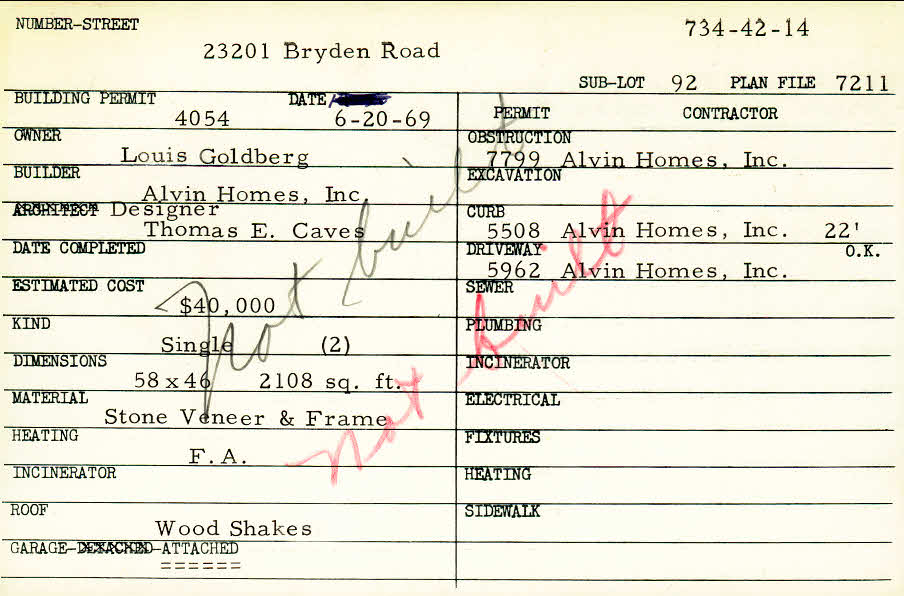 NUMBER-STREET
734-42-14
23201 Bryden Road
SUB-LOT 92 PLAN FILE 7211
BUILDING PERMIT DATE
4054 6-20-69
PERMIT CONTRACTOR
OWNER
Louis Goldberg
OBSTRUCTION
7799 Alvin Homes, Inc.
BUILDER
Alvin Homes, Inc.
EXCAVATION
ARCHITECT Designer
Thomas E. Caves
CURB
5508 Alvin Homes, Inc. 22'
DATE COMPLETED
DRIVEWAY O.K.
5962 Alvin Homes, Inc.
ESTIMATED COST
$40,000
SEWER
KIND
Single (2)
PLUMBING
DIMENSIONS
58 x 46 2108 sq. ft.
INCINERATOR
MATERIAL
Stone Veneer & Frame
ELECTRICAL
HEATING
F.A.
FIXTURES
INCINERATOR
HEATING
ROOF
Wood Shakes
SIDEWALK
GARAGE-DETACHED-ATTACHED
======
Not built
Not built